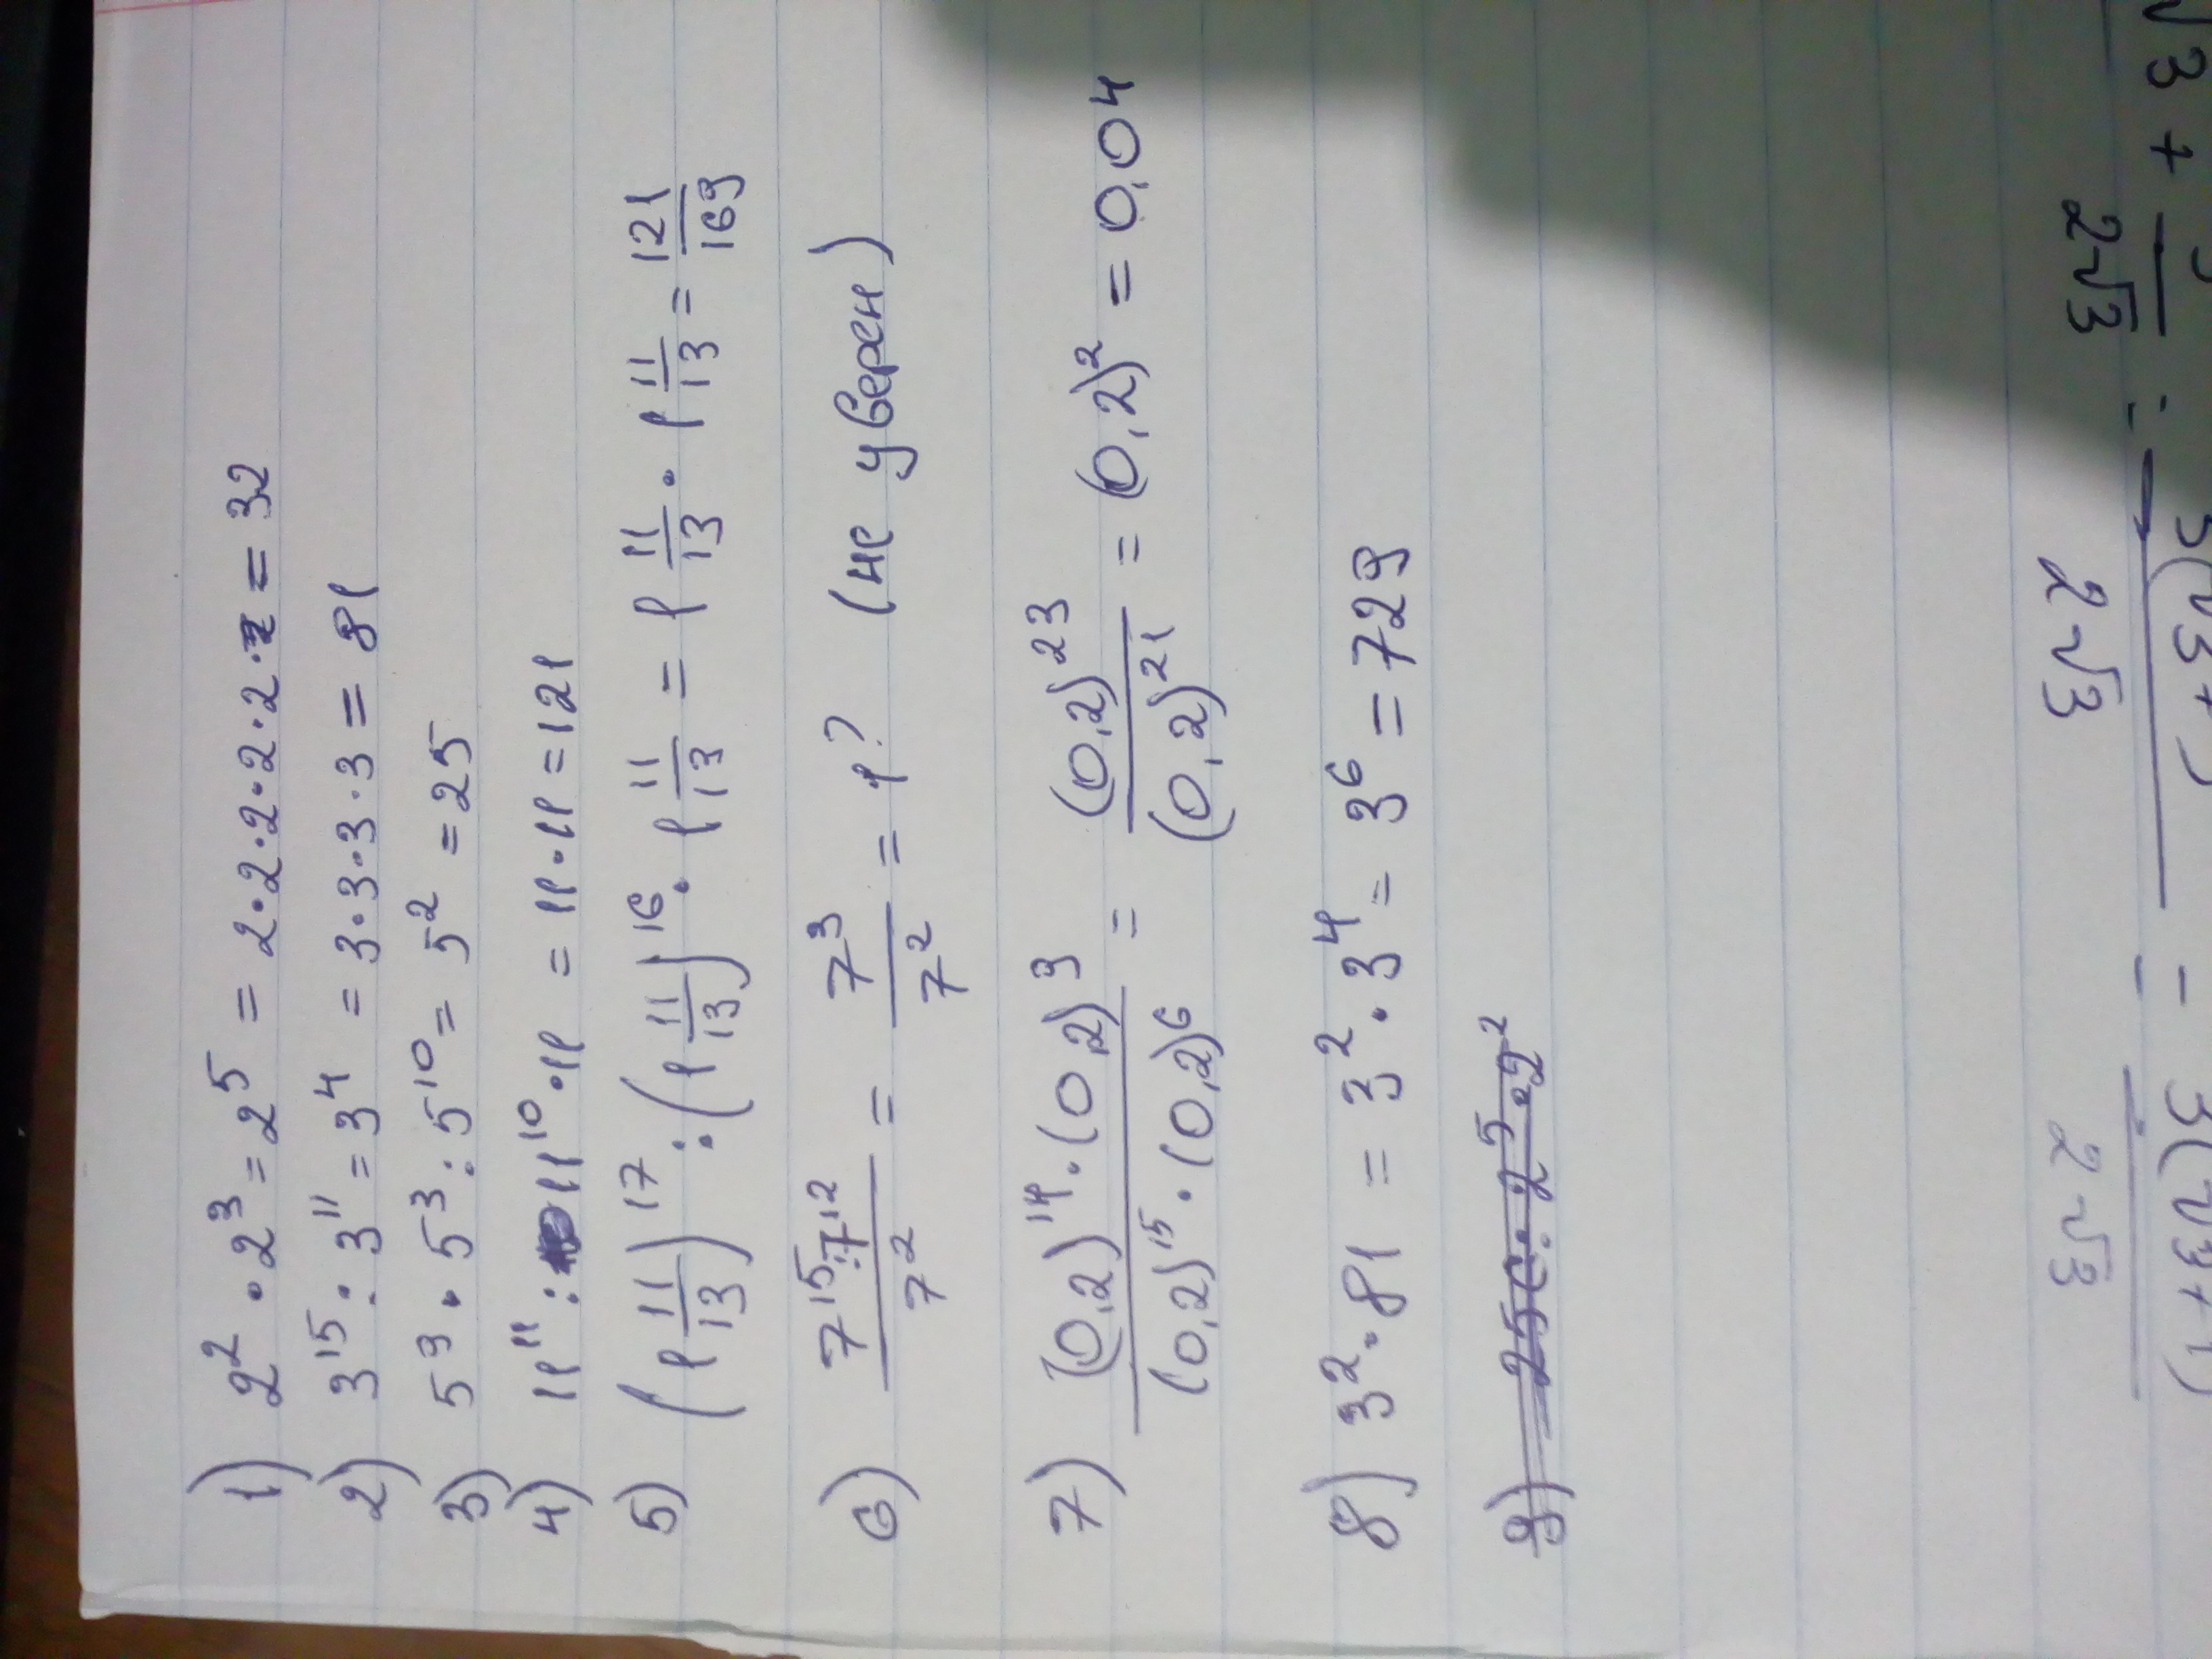 1) 2² · 2³ = 2⁵ = 2·2·2·2·2·2 = 32
2) 3¹⁵ : 3¹¹ = 3⁴ = 3·3·3·3 = 81
3) 5⁹ · 5³ : 5¹⁰ = 5² = 25
4) 11¹¹ : 11¹⁰ · 11 = 11·11 = 121
5) (1 11/13)¹⁷ : (1 11/13)¹⁶ · 1 11/13 = 1 11/13 · 1 11/13 = 121/169
6) (7¹⁵:7¹²)/7² = 7³/7² = 1? (не уверен)
7) ((0,2)¹⁴·(0,2)³)/((0,2)¹⁵·(0,2)⁶) = (0,2)²³/(0,2)²¹ = (0,2)² = 0,04
8) 3²·81 = 3²·3⁴ = 3⁶ = 729
2√3
2√3
2√3